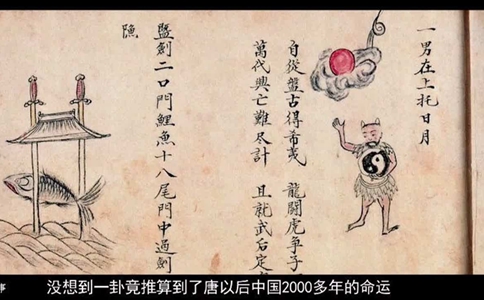 一男在上托日月
自從盤古得希夷 龍鬪虎争子
萬代興亡難尽計 且就武后定
劍二口門鯉魚十八尾門中過劍
事
没想到一卦竟推算到了唐以后中国2000多年的命运